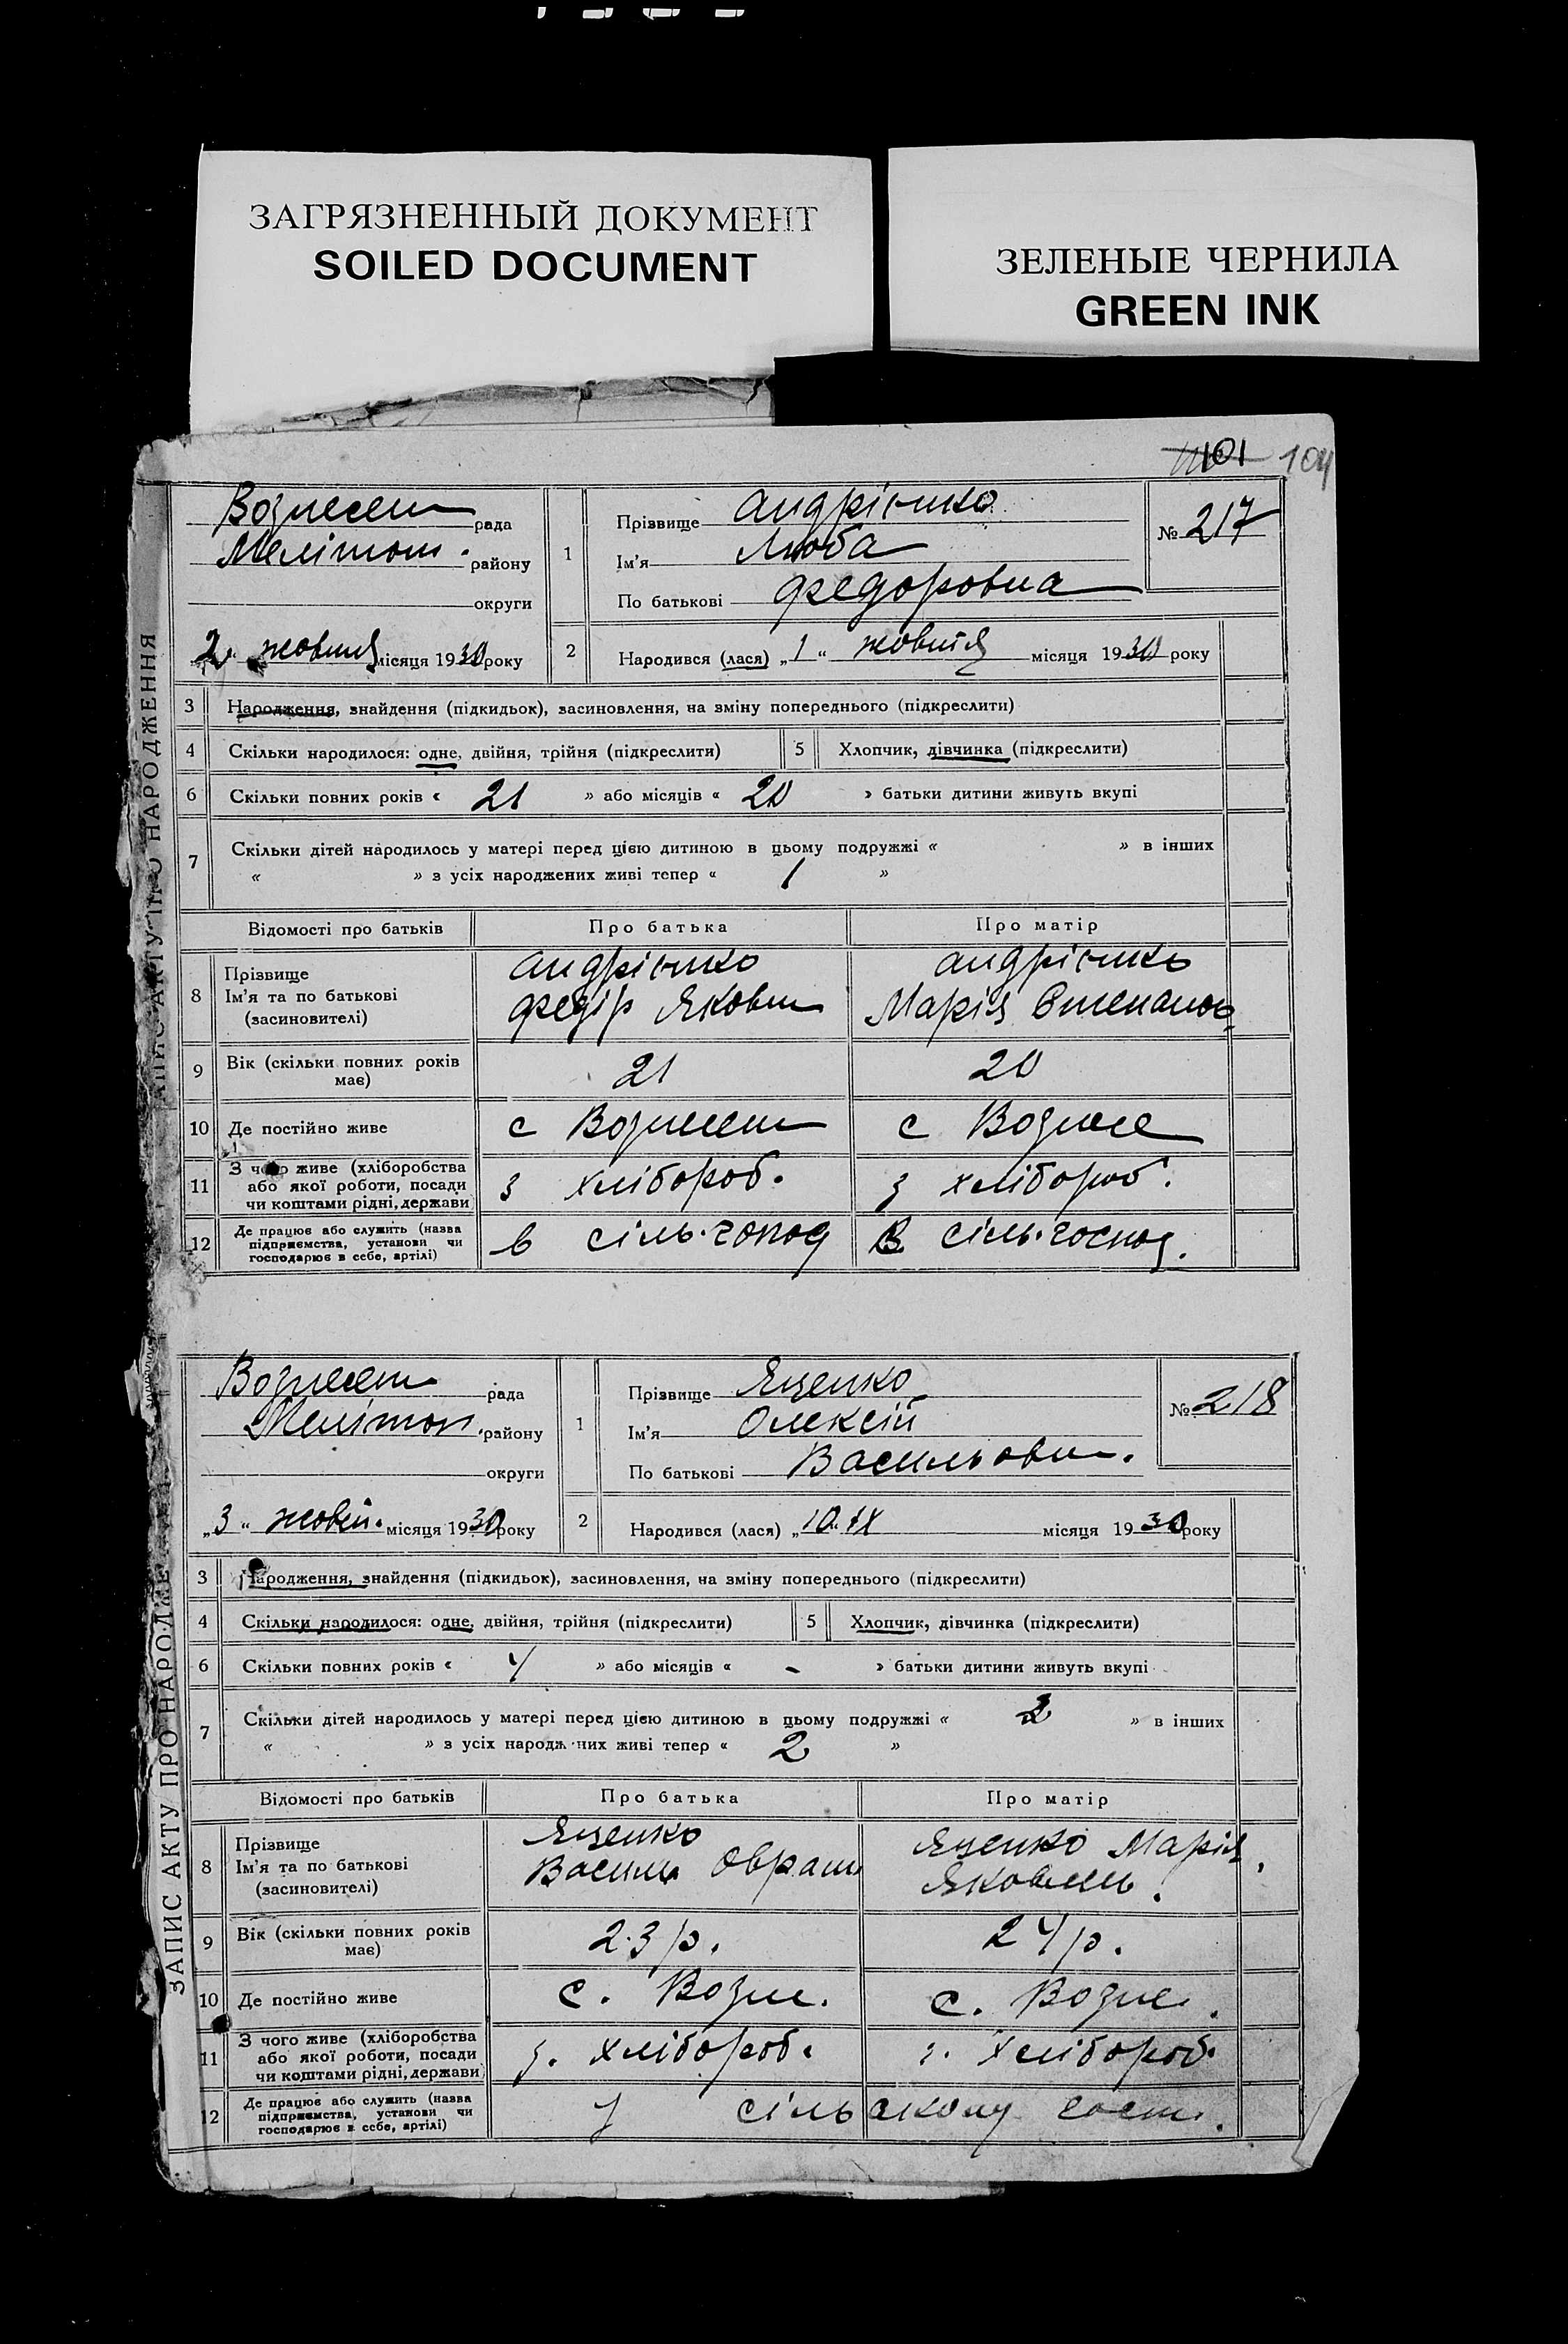 ЗАГРЯЗНЕННЫЙ ДОКУМЕНТ
SOILED DOCUMENT
ЗЕЛЕНЫЕ ЧЕРНИЛА
GREEN INK
101 104
ЗАПИС АКТУ ПРО НАРОДЖЕННЯ
Вознесен рада
Мелітоп. району
округи
2 жовтня місяця 1930 року
1
Прізвище Андрієнко
Ім'я Люба
По батькові Федоровна
№ 217
2 Народився (лася) „1“ жовтня місяця 1930 року
3 Народження, знайдення (підкидьок), засиновлення, на зміну попереднього (підкреслити)
4 Скільки народилося: одне, двійня, трійня (підкреслити) 5 Хлопчик, дівчинка (підкреслити)
6 Скільки повних років « 21 » або місяців « 20 » батьки дитини живуть вкупі
7 Скільки дітей народилось у матері перед цією дитиною в цьому подружжі « » в інших
« » з усіх народжених живі тепер « 1 »
Відомості про батьків Про батька Про матір
8 Прізвище
Ім'я та по батькові
(засиновителі)
Андрієнко
Федір Якович
Андрієнко
Марія Степанов
9 Вік (скільки повних років
має)
21 20
10 Де постійно живе с Вознесен с Вознесе
11 З чого живе (хліборобства
або якої роботи, посади
чи коштами рідні, держави
з хлібороб. з хлібороб.
12 Де працює або служить (назва
підприємства, установи чи
господарює в себе, артілі)
в сіль.гопод В сіль.господ.
ЗАПИС АКТУ ПРО НАРОДЖЕ
Вознесен рада
Мелітоп. району
округи
„3“ жовт. місяця 1930 року
1
Прізвище Яценко
Ім'я Олексій
По батькові Васильович.
№ 218
2 Народився (лася) „10“ IX місяця 1930 року
3 Народження, знайдення (підкидьок), засиновлення, на зміну попереднього (підкреслити)
4 Скільки народилося: одне, двійня, трійня (підкреслити) 5 Хлопчик, дівчинка (підкреслити)
6 Скільки повних років « 4 » або місяців « - » батьки дитини живуть вкупі
7 Скільки дітей народилось у матері перед цією дитиною в цьому подружжі « 2 » в інших
« » з усіх народжених живі тепер « 2 »
Відомості про батьків Про батька Про матір
8 Прізвище
Ім'я та по батькові
(засиновителі)
Яценко
Василь Оврам
Яценко Марія
Яковлев.
9 Вік (скільки повних років
має)
23 р. 24 р.
10 Де постійно живе с. Возне. с. Возне.
11 З чого живе (хліборобства
або якої роботи, посади
чи коштами рідні, держави)
з. хлібороб. з. хлібороб.
12 Де працює або служить (назва
підприємства, установи чи
господарює в себе, артілі)
У сільскому госп.